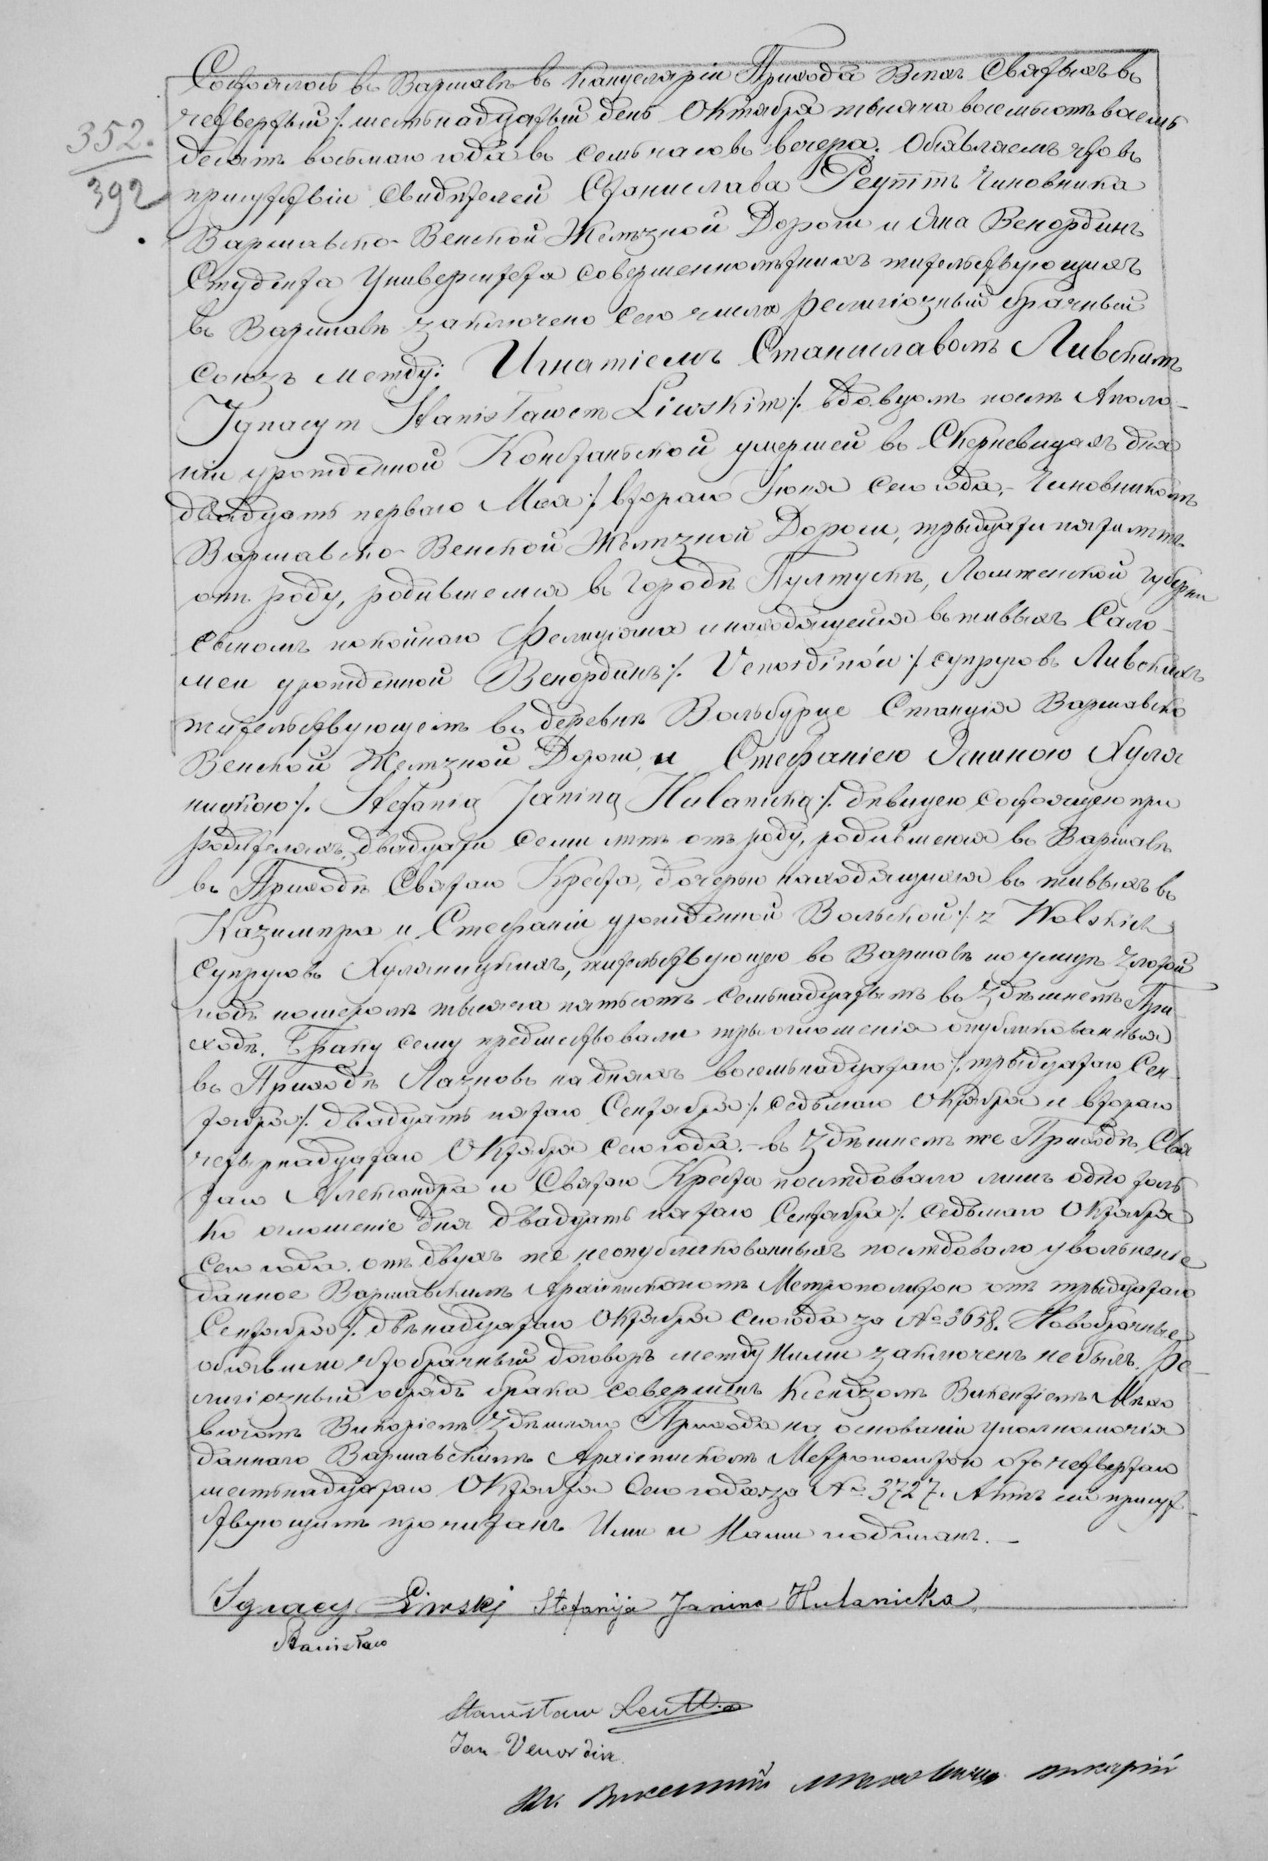 352.
392
Состоялось въ Варшавѣ въ Канцеляріи Прихода Всѣхъ Святыхъ въ
четвертый /. шестьнадцатый день Октября тысяча восемьсотъ восемь
десятъ восьмаго года въ семь часовъ вечера. Объявляемъ что въ
присутствіи свидѣтелей Станислава Реуттъ Чиновника
Варшавско-Венской Желѣзной Дороги и Яна Венординъ
Студента Университета совершеннолѣтнихъ жительствующихъ
въ Варшавѣ заключено сего числа религіозный брачный
союзъ между: Игнатіемъ Станиславомъ Ливскимъ
Ignacym Stanisławem Liwskim /. вдовцомъ послѣ Аполо-
ніи урожденной Констанской умершей въ Скерневицахъ дня
двадцать перваго Мая /. втораго Іюня сего года, - Чиновникомъ
Варшавско-Венской Желѣзной Дороги, трыдцати пяти лѣтъ
отъ роду, родившемся въ городѣ Пултускѣ, Ломженской губерни
сыномъ покойнаго Фелиціона и находящейся въ живыхъ Сало-
меи урожденной Венординъ /. Venordinów /. супруговъ Ливскихъ
жительствующемъ въ деревнѣ Вольбурце Станція Варшавско
Венской Желѣзной Дороги, и Стефаніею Яниною Хуля
ницкою /. Stefanią Janiną Hulanicką /. дѣвицею состоящею при
родителяхъ, двадцати семи лѣтъ отъ роду, родившеюся въ Варшавѣ
въ Приходѣ Святаго Креста, дочерью находящихся въ живыхъ въ
Казимира и Стефаніи урожденной Вольской /. z Wolskich
супруговъ Хуляницкихъ, жительствующею въ Варшавѣ по улицѣ Златой
подъ номеромъ тысяча пятьсотъ семьнадцатымъ въ здѣшнемъ При-
ходѣ. Браку сему предшествовали три оглошенія опубликованныя
въ Приходѣ Лазновъ на дняхъ восемьнадцатаго /. трыдцатаго Сен-
тября /. двадцать пятаго Сентября /. седьмаго Октября и втораго
четырнадцатаго Октября сего года. - въ здѣшнемъ же Приходѣ Свя
таго Александра и Святаго Креста послѣдовало лишь одно толь
ко оглошеніе дня двадцать пятаго Сентября /. седьмаго Октября
сего года. отъ двухъ же неопубликованныхъ послѣдовало увольненіе
данное Варшавскимъ Архіепископомъ Метрополитою отъ трыдцатаго
Сентября /. двѣнадцатаго Октября сего года за № 3658. Новобрачные
объявили что брачный договоръ между ними заключенъ не былъ. Ре-
лигіозный обрядъ брака совершилъ Ксендзомъ Викентіемъ Мѣхо
вичомъ Викаріемъ здѣшняго Прихода на основаніи уполномочія
даннаго Варшавскимъ Архіепископомъ Метрополитою отъ четвертаго
шестьнадцатаго Октября сего года за № 3727. Актъ сей присут-
ствующимъ прочитанъ Ими и Нами подписанъ. -
Ignacy Liwski Stefanija Janina Hulanicka
Stanisław
Stanisław Reutt
Jan Venordin
Кс. Викентій Мѣховичъ викарій